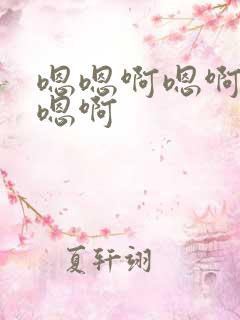 嗯嗯啊嗯啊
嗯啊
夏轩翊